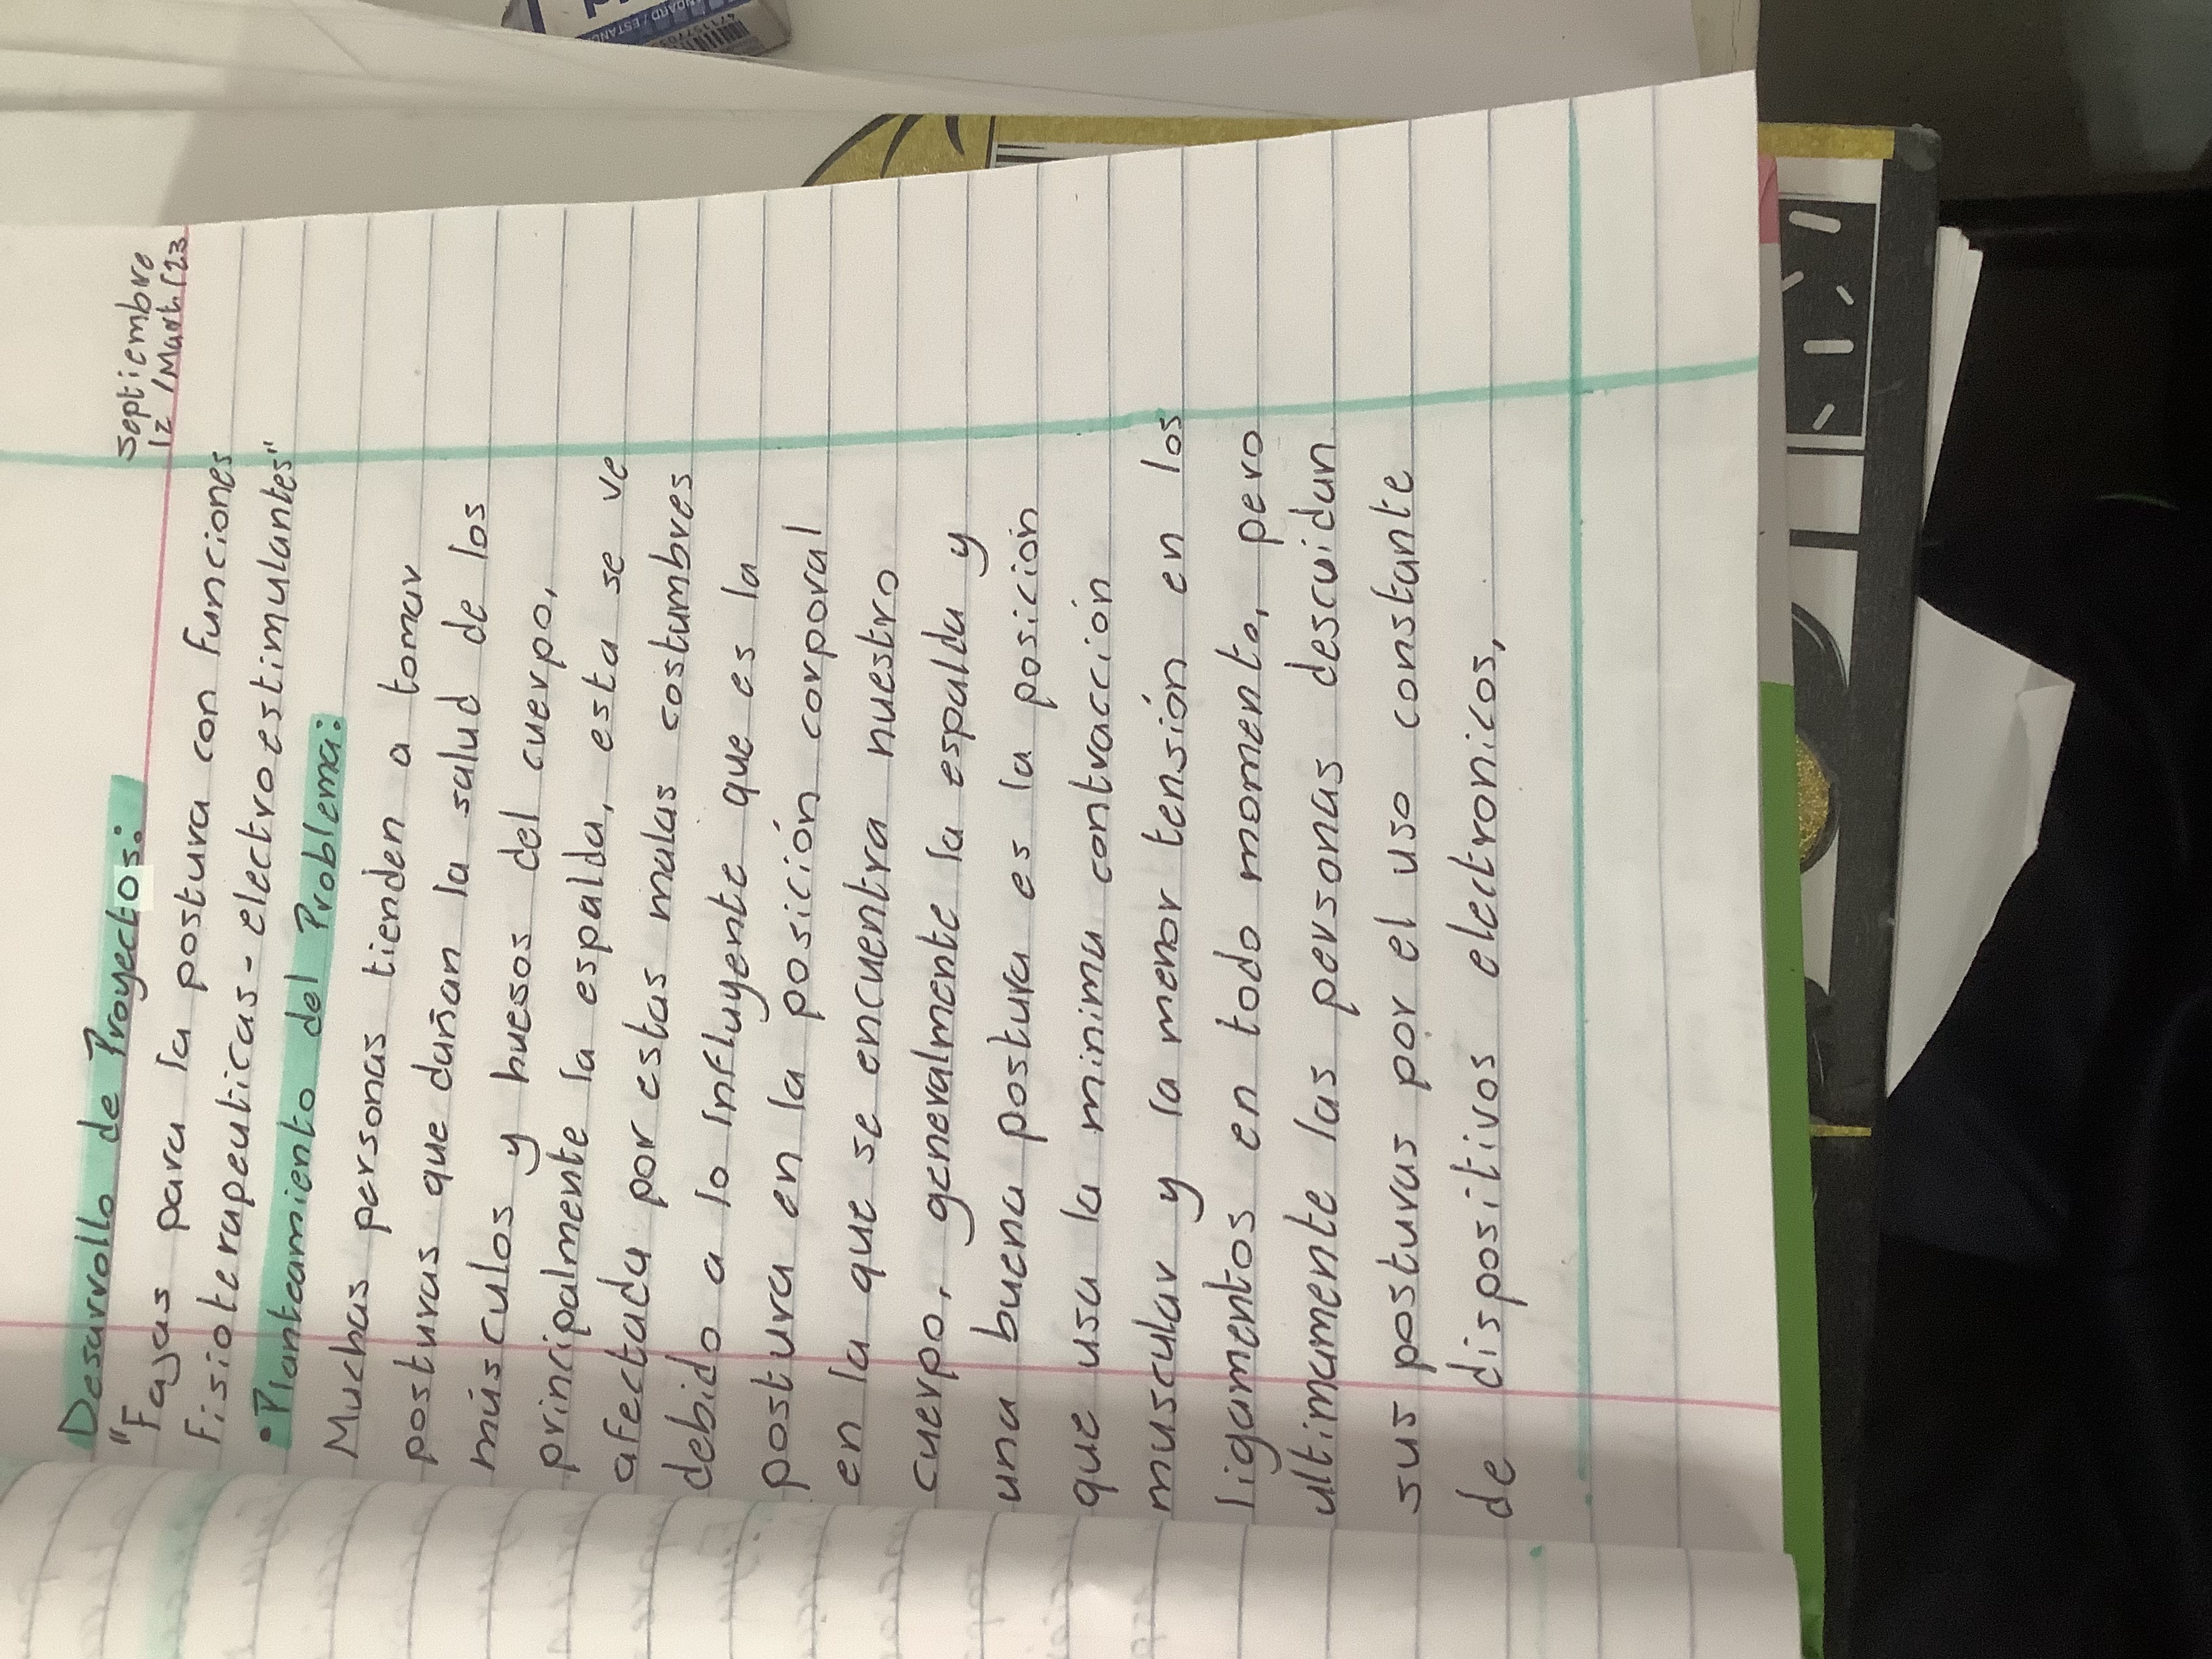 Septiembre
12 /Mart./23
Desarrollo de Proyectos:
"Fajas para la postura con funciones
fisioterapeuticas-electroestimulantes"
•Planteamiento del Problema:
Muchas personas tienden a tomar
posturas que dañan la salud de los
músculos y huesos del cuerpo,
principalmente la espalda, esta se ve
afectada por estas malas costumbres
debido a lo influyente que es la
postura en la posición corporal
en la que se encuentra nuestro
cuerpo, generalmente la espalda y
una buena postura es la posición
que usa la minima contracción
muscular y la menor tensión en los
ligamentos en todo momento, pero
ultimamente las personas descuidan
sus posturas por el uso constante
de dispositivos electronicos,